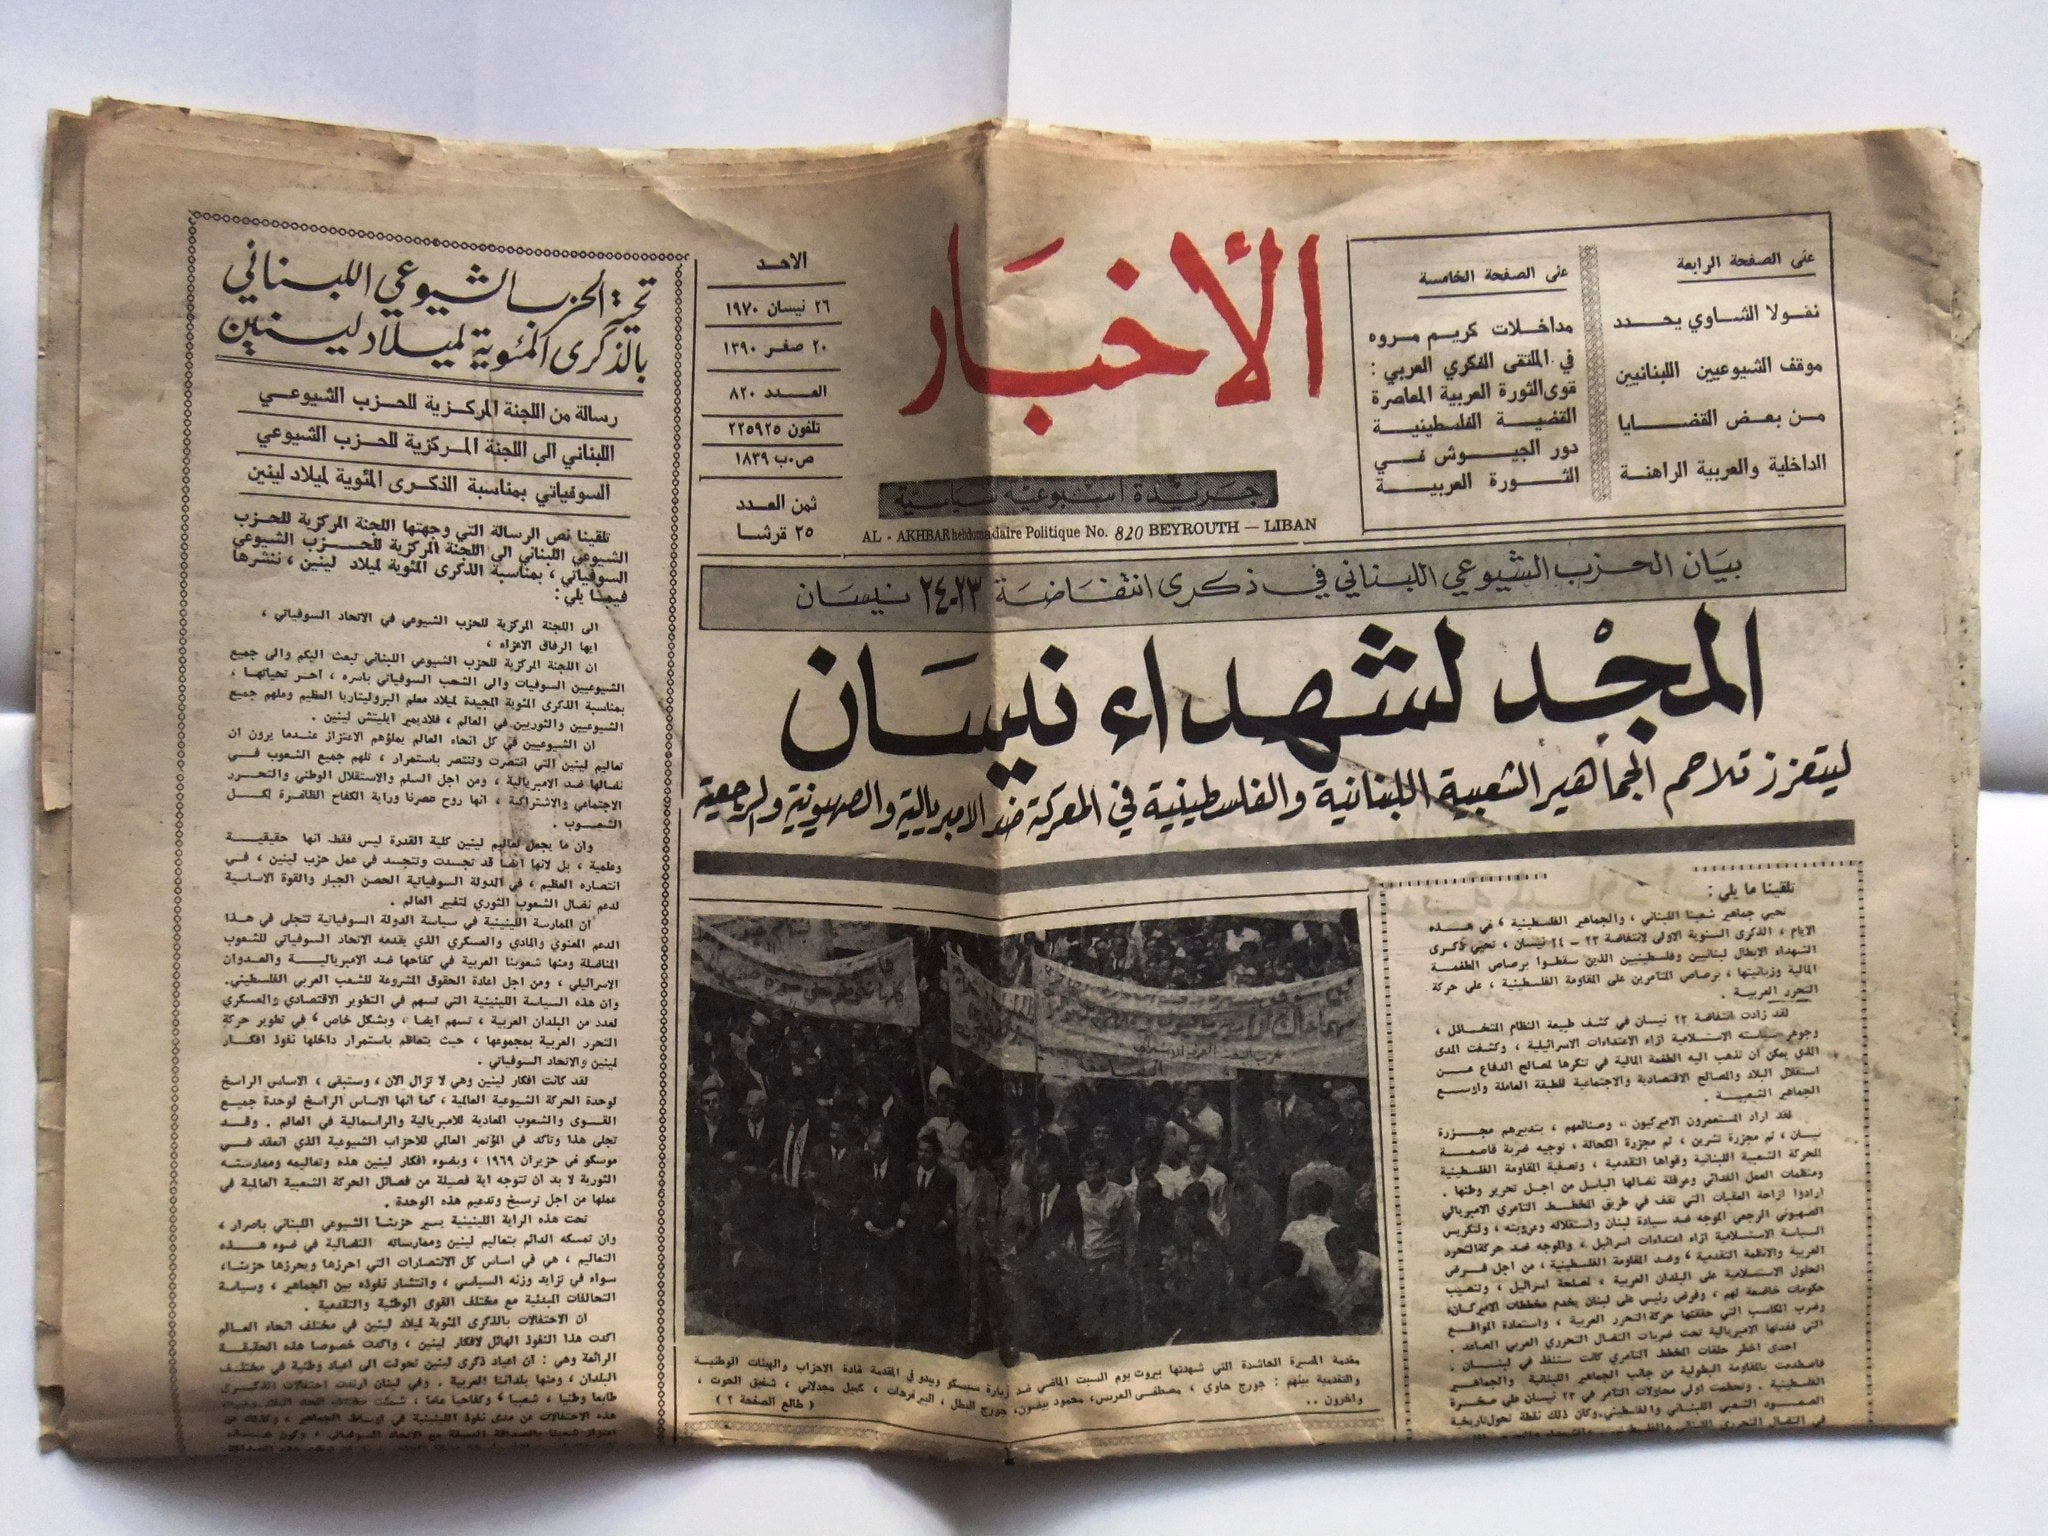 على الصفحة الرابعة
نقولا الشاوي يحدد
موقف الشيوعيين اللبنانيين
من بعض القضايا
الداخلية والعربية الراهنة
على الصفحة الخامسة
مداخلات كريم مروه
في الملتقى الفكري العربي :
قوى الثورة العربية المعاصرة
القضية الفلسطينية
دور الجيوش في
الثورة العربية
الأخبار
جريدة اسبوعية سياسية
AL - AKHBAR hebdomadaire Politique No. 820 BEYROUTH — LIBAN
الاحد
٢٦ نيسان ١٩٧٠
٢٠ صفر ١٣٩٠
العدد ٨٢٠
تلفون ٢٢٥٩٢٥
ص.ب ١٨٣٩
ثمن العدد
٢٥ قرشا
بيان الحزب الشيوعي اللبناني في ذكرى انتفاضة ٢٣-٢٤ نيسان
المجد لشهداء نيسان
ليتعزز تلاحم الجماهير الشعبية اللبنانية والفلسطينية في المعركة ضد الامبريالية والصهيونية والرجعية
تلقينا ما يلي :
تحيي جماهير شعبنا اللبناني ، والجماهير الفلسطينية ، في هذه
الايام ، الذكرى السنوية الاولى لانتفاضة ٢٣ - ٢٤ نيسان ، تحيي ذكرى
الشهداء الابطال لبنانيين وفلسطينيين الذين سقطوا برصاص الطغمة
المالية وزبانيتها ، برصاص المتآمرين على المقاومة الفلسطينية ، على حركة
التحرر العربية .
لقد زادت انتفاضة ٢٣ نيسان في كشف طبيعة النظام المتخاذل ،
وجوهر سياسته الاستسلامية ازاء الاعتداءات الاسرائيلية ، وكشفت المدى
الذي يمكن ان تذهب اليه الطغمة المالية في تنكرها لمصالح الدفاع عن
استقلال البلاد والمصالح الاقتصادية والاجتماعية للطبقة العاملة واوسع
الجماهير الشعبية .
لقد اراد المستعمرون الاميركيون ، وصنائعهم ، بتدبيرهم مجزرة
نيسان ، ثم مجزرة تشرين ، ثم مجزرة الكحالة ، توجيه ضربة قاصمة
للحركة الشعبية اللبنانية وقواها التقدمية ، وتصفية المقاومة الفلسطينية
ومنظمات العمل الفدائي وعرقلة نضالها الباسل من اجل تحرير وطنها .
ارادوا ازاحة العقبات التي تقف في طريق المخطط التآمري الامبريالي
الصهيوني الرجعي الموجه ضد سيادة لبنان واستقلاله وعروبته ، ولتكريس
السياسة الاستسلامية ازاء اعتداءات اسرائيل ، والموجه ضد حركة التحرر
العربية والانظمة التقدمية ، وضد المقاومة الفلسطينية ، من اجل فرض
الحلول الاستسلامية على البلدان العربية ، لمصلحة اسرائيل ، وتنصيب
حكومات خاضعة لهم ، وفرض رئيس على لبنان يخدم مخططات الاميركان،
وضرب المكاسب التي حققتها حركة التحرر العربية ، واستعادة المواقع
التي فقدتها الامبريالية تحت ضربات النضال التحرري العربي الصاعد .
احدى اخطر حلقات المخطط التآمري كانت ستنفذ في لبنان .
فاصطدمت بالمقاومة البطولية من جانب الجماهير اللبنانية والجماهير
الفلسطينية . وتحطمت اولى محاولات التآمر في ٢٣ نيسان على صخرة
الصمود الشعبي اللبناني والفلسطيني. وكان ذلك نقطة تحول تاريخية
في النضال التحرري اللبناني والفلسطيني
مقدمة المسيرة الحاشدة التي شهدتها بيروت يوم السبت الماضي ضد زيارة سيسكو ويبدو في المقدمة قادة الاحزاب والهيئات الوطنية
والتقدمية بينهم : جورج حاوي ، مصطفى العريس، محمود بيضون، جورج البطل ، البير فرحات ، كميل مجدلاني ، شفيق الحوت ،
واخرون .. ( طالع الصفحة ٢ )
تحية الحزب الشيوعي اللبناني
بالذكرى المئوية لميلاد لينين
رسالة من اللجنة المركزية للحزب الشيوعي
اللبناني الى اللجنة المركزية للحزب الشيوعي
السوفياتي بمناسبة الذكرى المئوية لميلاد لينين
تلقينا نص الرسالة التي وجهتها اللجنة المركزية للحزب
الشيوعي اللبناني الى اللجنة المركزية للحزب الشيوعي
السوفياتي ، بمناسبة الذكرى المئوية لميلاد لينين ، ننشرها
فيما يلي :
الى اللجنة المركزية للحزب الشيوعي في الاتحاد السوفياتي ،
ايها الرفاق الاعزاء ،
ان اللجنة المركزية للحزب الشيوعي اللبناني تبعث اليكم والى جميع
الشيوعيين السوفيات والى الشعب السوفياتي باسره ، احر تحياتها ،
بمناسبة الذكرى المئوية المجيدة لميلاد معلم البروليتاريا العظيم وملهم جميع
الشيوعيين والثوريين في العالم ، فلاديمير ايليتش لينين .
ان الشيوعيين في كل انحاء العالم يملؤهم الاعتزاز عندما يرون ان
تعاليم لينين التي انتصرت وتنتصر باستمرار ، تلهم جميع الشعوب في
نضالها ضد الامبريالية ، ومن اجل السلم والاستقلال الوطني والتحرر
الاجتماعي والاشتراكية ، انها روح عصرنا وراية الكفاح الظافرة لكل
الشعوب .
وان ما يجعل تعاليم لينين كلية القدرة ليس فقط انها حقيقية
وعلمية ، بل لانها ايضا قد تجسدت وتتجسد في عمل حزب لينين ، في
انتصاره العظيم ، في الدولة السوفياتية الحصن الجبار والقوة الاساسية
لدعم نضال الشعوب الثوري لتغيير العالم .
ان الممارسة اللينينية في سياسة الدولة السوفياتية تتجلى في هذا
الدعم المعنوي والمادي والعسكري الذي يقدمه الاتحاد السوفياتي للشعوب
المناضلة ومنها شعوبنا العربية في كفاحها ضد الامبريالية والعدوان
الاسرائيلي ، ومن اجل اعادة الحقوق المشروعة للشعب العربي الفلسطيني.
وان هذه السياسة اللينينية التي تسهم في التطوير الاقتصادي والعسكري
لعدد من البلدان العربية ، تسهم ايضا ، وبشكل خاص ، في تطوير حركة
التحرر العربية بمجموعها ، حيث يتعاظم باستمرار داخلها نفوذ افكار
لينين والاتحاد السوفياتي .
لقد كانت افكار لينين وهي لا تزال الآن ، وستبقى ، الاساس الراسخ
لوحدة الحركة الشيوعية العالمية ، كما انها الاساس الراسخ لوحدة جميع
القوى والشعوب المعادية للامبريالية والرأسمالية في العالم . وقد
تجلى هذا وتأكد في المؤتمر العالمي للاحزاب الشيوعية الذي انعقد في
موسكو في حزيران ١٩٦٩ ، وبضوء افكار لينين هذه وتعاليمه وممارسته
الثورية لا بد ان تتوجه اية فصيلة من فصائل الحركة الشعبية العالمية في
عملها من اجل ترسيخ وتدعيم هذه الوحدة .
تحت هذه الراية اللينينية يسير حزبنا الشيوعي اللبناني باصرار ،
وان تمسكه الدائم بتعاليم لينين وممارساته النضالية في ضوء هذه
التعاليم ، هي في اساس كل الانتصارات التي احرزها ويحرزها حزبنا،
سواء في تزايد وزنه السياسي ، وانتشار نفوذه بين الجماهير ، وسياسة
التحالفات المبدئية مع مختلف القوى الوطنية والتقدمية .
ان الاحتفالات بالذكرى المئوية لميلاد لينين في مختلف انحاء العالم
اكدت هذا النفوذ الهائل لافكار لينين ، واكدت خصوصا هذه الحقيقة
الرائعة وهي : ان اعياد ذكرى لينين تحولت الى اعياد وطنية في مختلف
البلدان ، ومنها بلداننا العربية . وفي لبنان ارتدت احتفالات الذكرى
طابعا وطنيا ، شعبيا ، وكفاحيا عاما ، شملت مختلف انحاء البلاد
هذه الاحتفالات عن مدى نفوذ اللينينية في اوساط الجماهير ، وكذلك عن
اعتزاز شعبنا بالصداقة العميقة مع الاتحاد السوفياتي